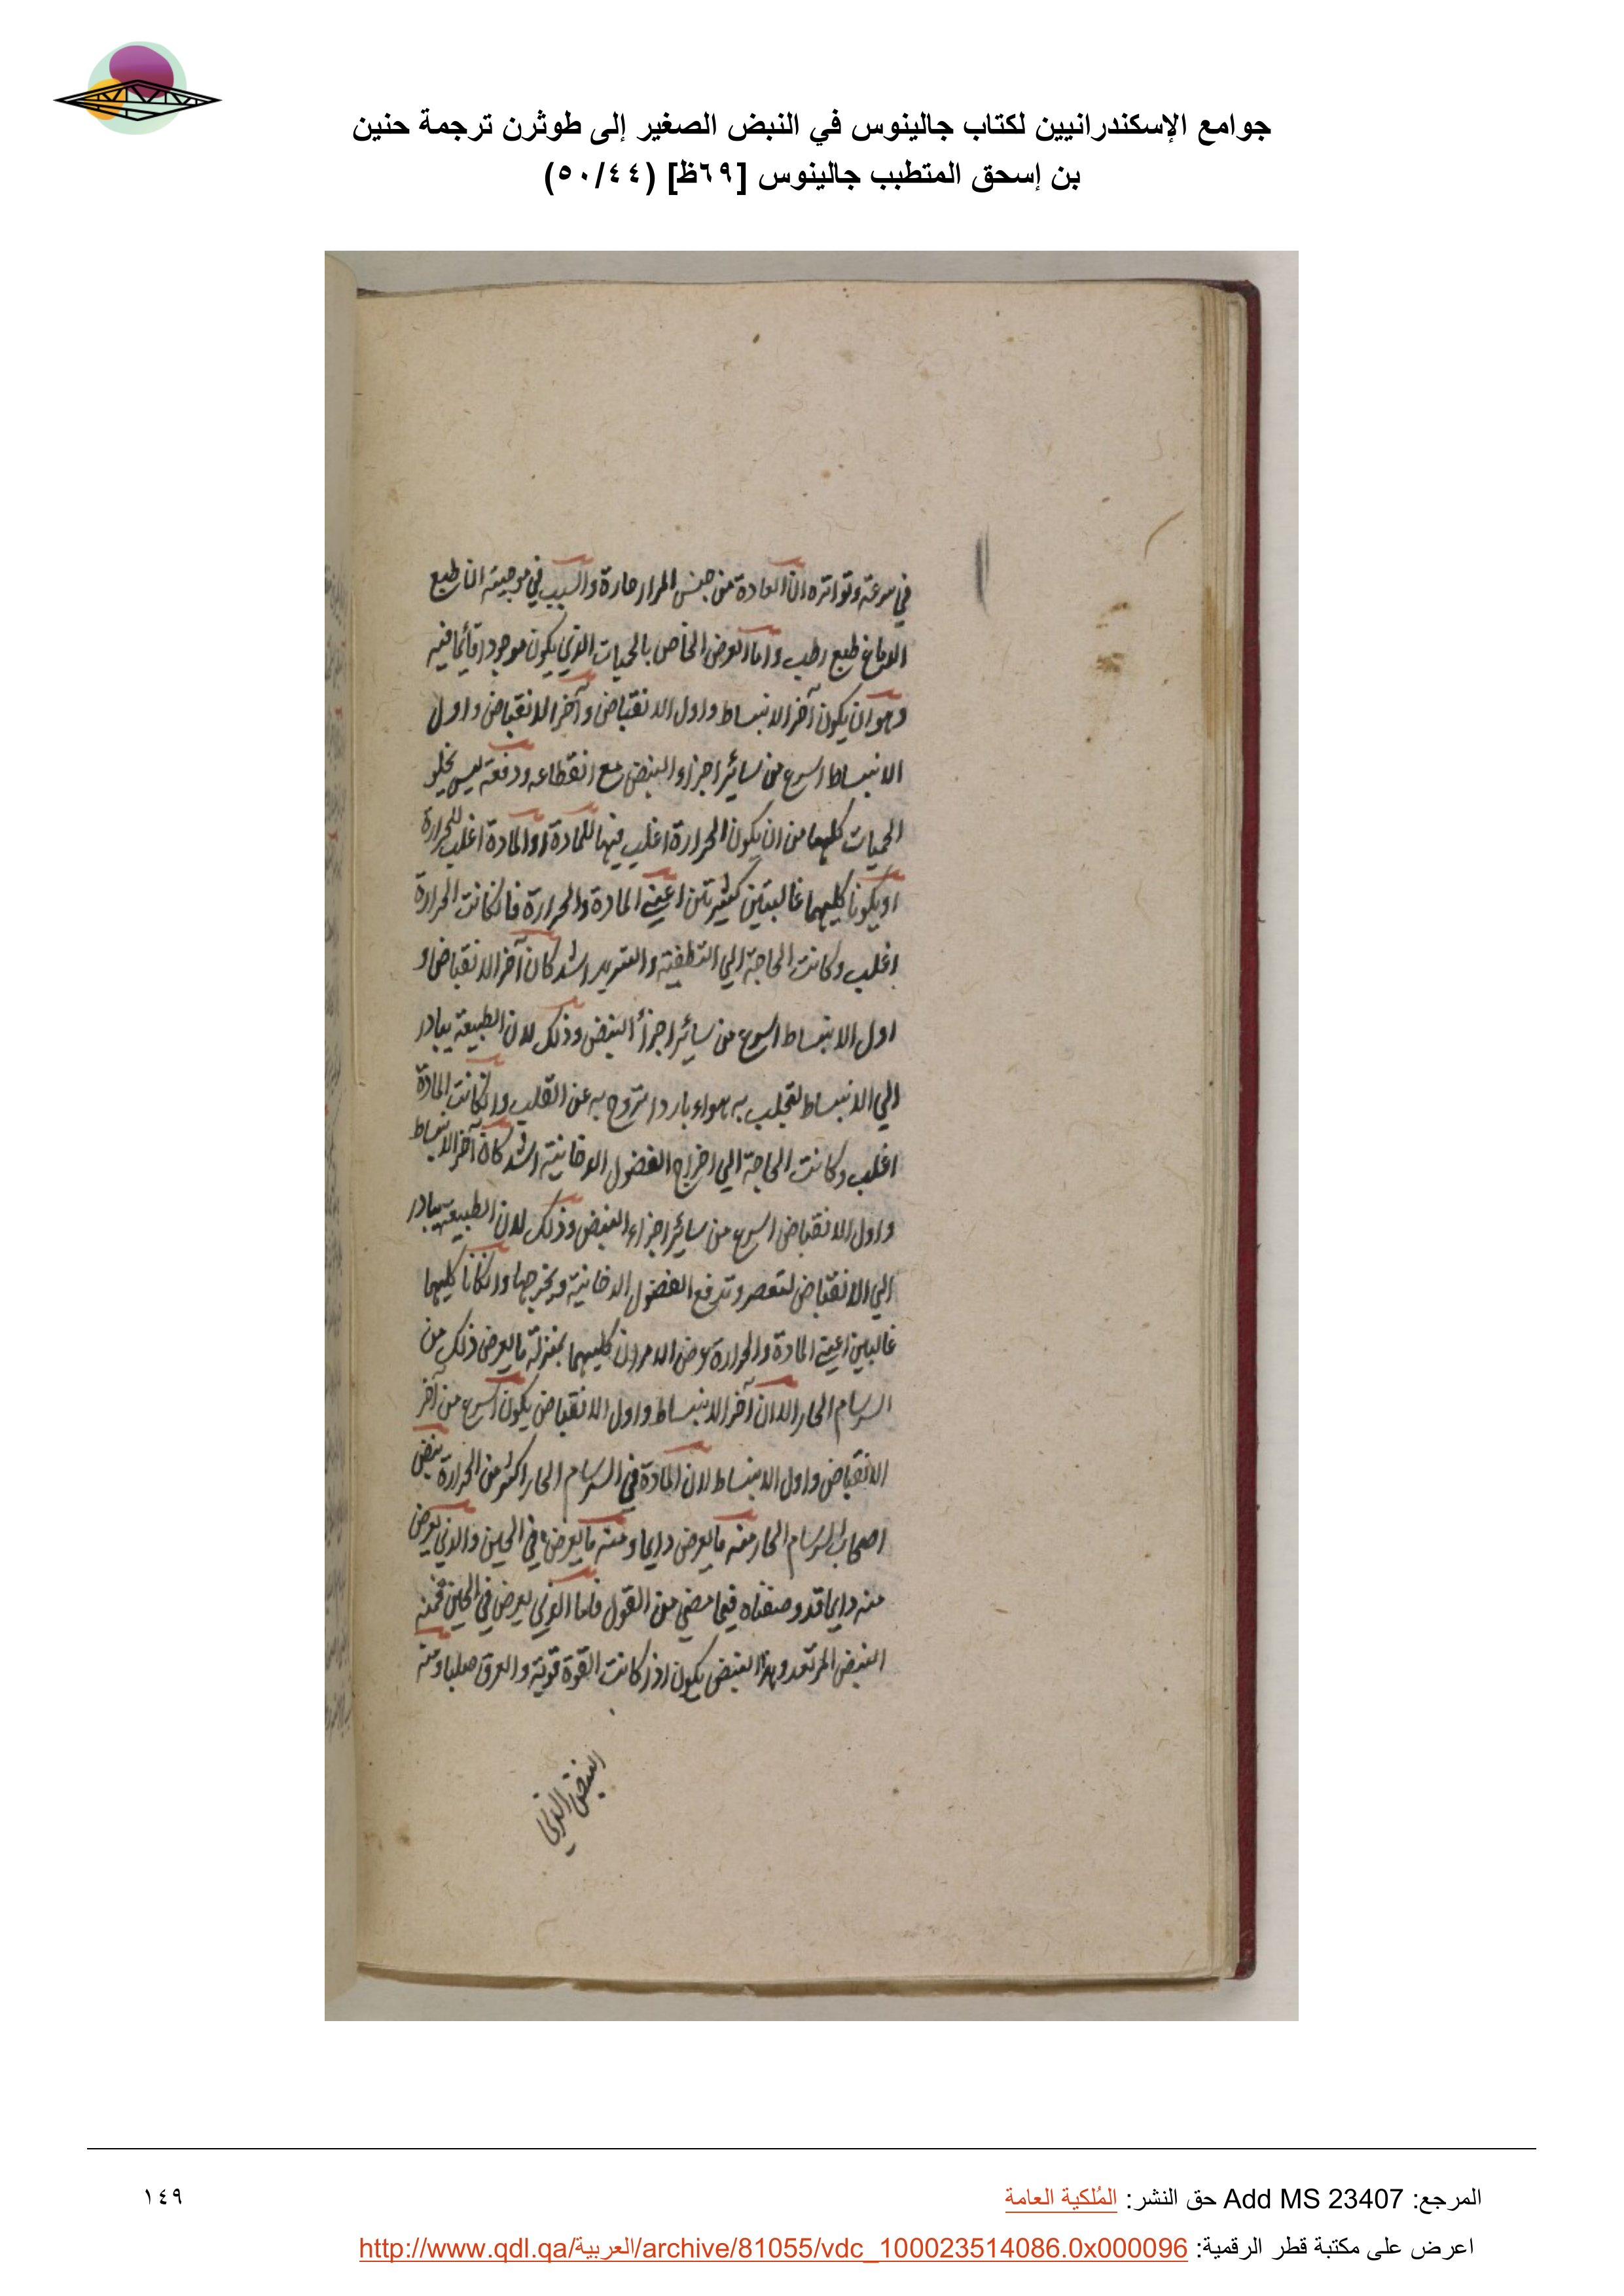 جوامع الإسكندرانيين لكتاب جالينوس في النبض الصغير إلى طوثرن ترجمة حنين
بن إسحق المتطبب جالينوس [٦٩ظ] (٥٠/٤٤)
في سرعته وتواتره ان المادة من جنس المرار حارة والسبب في موجيته ان طبع
الدماغ طبع رطب واما العرض الخاص بالحميات الذي يكون موجودا قائما فيه
وهو ان يكون آخر الانبساط واول الانقباض وآخر الانقباض واول
الانبساط اسرع من سائر اجزاء النبض مع انقطاعه ودفعة ليس يخلو
الحميات كلها من ان يكون الحرارة اغلب فيها للمادة او المادة اغلب للحرارة
او يكونا كليهما غالبتين كثيرتين اعني المادة والحرارة فان كانت الحرارة
اغلب وكانت الحاجة الي التطفية والتبريد اشد كان آخر الانقباض و
اول الانبساط اسرع من سائر اجزأ النبض وذلك لان الطبيعة يبادر
الي الانبساط لتجلب به هواء باردا تروح به عن القلب وان كانت المادة
اغلب وكانت الحاجة الي اخراج الفضول الدخانية اشد كان آخر الانبساط
واول الانقباض اسرع من سائر اجزاء النبض وذلك لان الطبيعة يبادر
الي الانقباض لتعصر وتدفع الفضول الدخانية ويخرجها وان كانا كليهما
غالبين اعني المادة والحرارة عرض الامران كليهما بمنزلة ما يعرض ذلك من
السرسام الحار الا ان آخر الانبساط واول الانقباض يكون اسرع من آخر
الانقباض واول الانبساط لان المادة في السرسام الحار اكثر من الحرارة نبض
اصحاب السرسام الحار منه ما يعرض دايما ومنه ما يعرض في الحين والذي يعرض
منه دايما قد وصفناه فيما مضي من القول فاما الذي يعرض في الحين فمنه
النبض المرتعد وهذا النبض يكون اذا كانت القوة قوية والعرق صلبا ومنه
النبض الذي
المرجع: Add MS 23407 حق النشر: المُلكية العامة
١٤٩
اعرض على مكتبة قطر الرقمية: http://www.qdl.qa/العربية/archive/81055/vdc_100023514086.0x000096